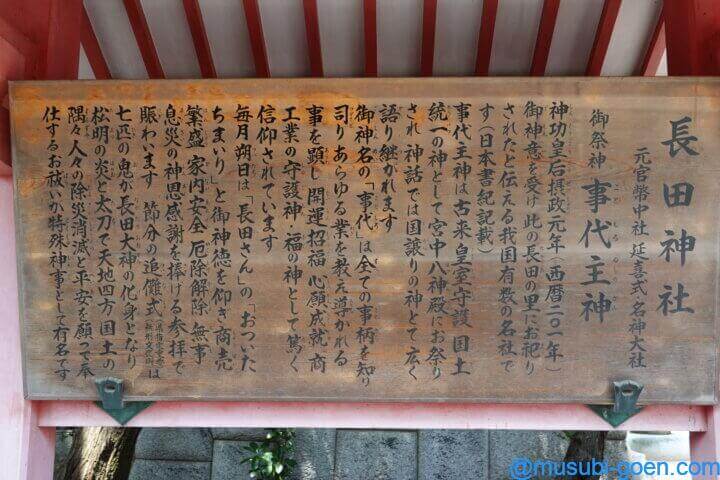 長田神社
元官幣中社 延喜式名神大社
御祭神 事代主神
神功皇后摂政元年(西暦二〇一年)
御神意を受け此の長田の里にお祀り
されたと伝える我国有数の名社で
す(日本書紀記載)
事代主神は古来 皇室守護 国土
統一の神として宮中八神殿にお祭り
され 神話では国譲りの神とて広く
語り継がれます
御神名の「事代」は全ての事柄を知り
司りあらゆる業を教え導かれる
事を顕し 開運招福 心願成就 商
工業の守護神・福の神として篤く
信仰されています
毎月朔日は「長田さん」の「おついた
ちまいり」と御神徳を仰ぎ 商売
繁盛 家内安全 厄除解除 無事
息災の神恩感謝を捧げる参拝で
賑わいます 節分の追儺式(県指定重要無形文化財)は
七匹の鬼が長田大神の化身となり
松明の炎と太刀で天地四方 国土の
隅々人々の除災消滅と平安を願って奉
仕するお祓いの特殊神事として有名です
@musubi-goen.com